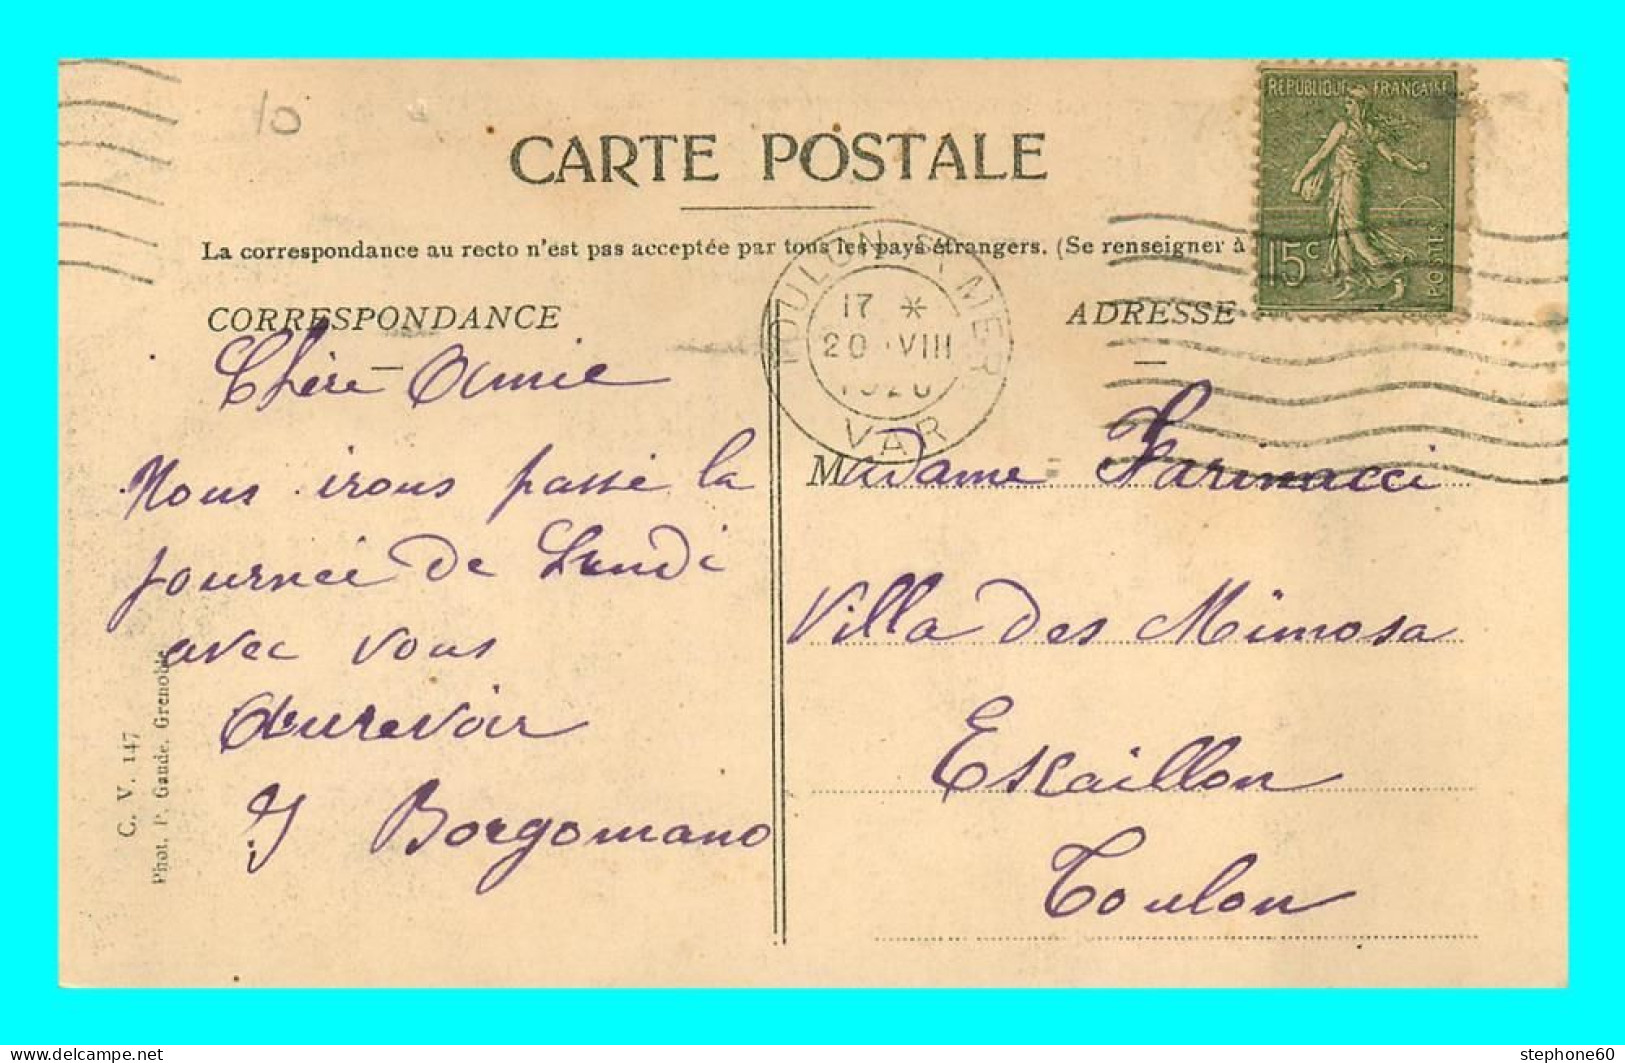 10
CARTE POSTALE
RÉPUBLIQUE FRANÇAISE
15c
POSTES
La correspondance au recto n'est pas acceptée par tous les pays étrangers. (Se renseigner à
TOULON S MER
17 *
20 · VIII
1920
VAR
CORRESPONDANCE
Chère Amie
Nous irons passé la
journée de Lundi
avec vous
Aurevoir
Borgomano
C. V. 147
Phot. P. Gaude. Grenoble
ADRESSE
Madame Farinacci
Villa des Mimosa
Escaillon
Toulon
www.delcampe.net
stephone60